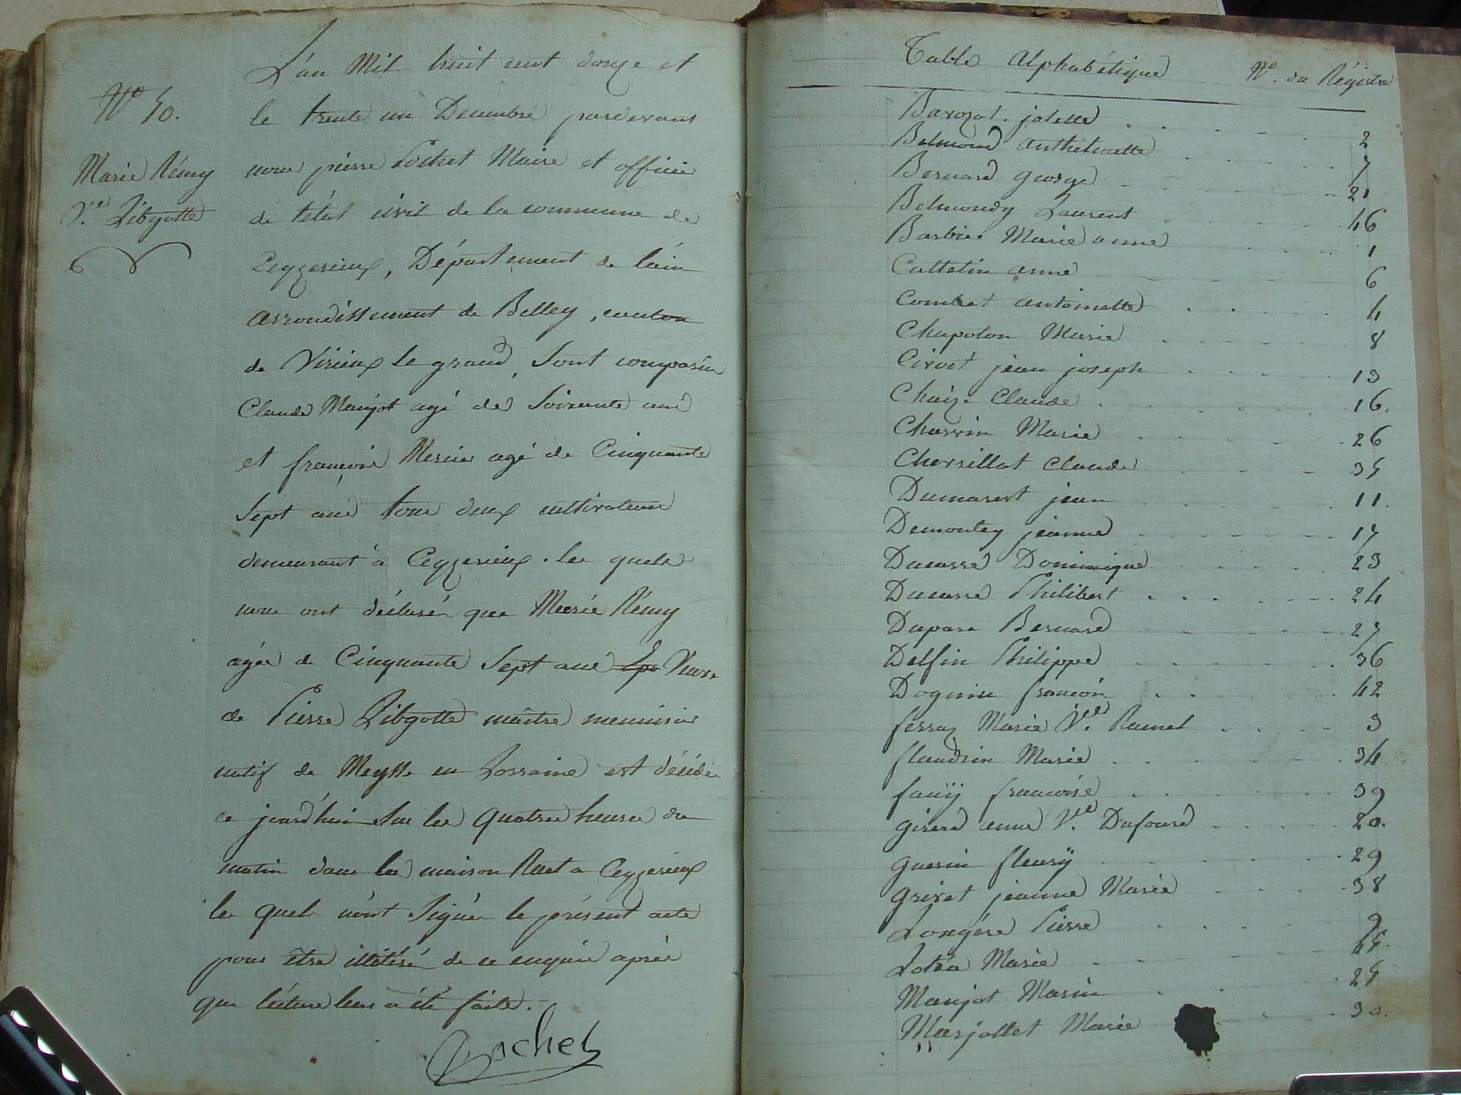 N.º 50.
Marie Rémy
V.e Libgotte
L'an Mil huit cent douze et
le trente un Decembre pardevant
nous pierre Rochet Maire et officier
de l'état civil de la commune de
Ceyzerieux, Département de l'ain
arrondissement de Belley, canton
de Virieux le grand, sont comparûs
Claude Manjot agé de soixante ans
et francois Mercier agé de Cinquante
Sept ans tous deux cultivateurs
demeurant à Ceyzerieux. les quels
nous ont déclaré que Marie Rémy
agée de Cinquante Sept ans Veuve
de Pierre Libgotte maître menuisier
natif de en Lorraine est décédée
ce jourd'hui sur les quatres heures du
matin dans la maison Ruet a Ceyzerieux
les quels n'ont signés le présent acte
pour être illitéré de ce enquis après
que lecture leur a été faite.
Rochet
Table Alphabétique N.º du Régistre
Barozat josette 2
Belmond anthelmette 7
Bernard george 21
Belmondy Laurent 46
Barbier Marie anne 1
Cattelin anne 6
Combet antoinette 4
Chapolon Marie 8
Civoct jean joseph 13
Chaize Claude 16.
Charvin Marie 26
Chevrillat Claude 35
Dumarest jean 11.
Demontey jeanne 17
Ducarre Dominique 23
Ducarre Philibert 24
Duparc Bernard 27
Delfin Philippe 36
Dognin francois 42
ferraz Marie V.e Ramel 3
flandrin Marie 34
faüÿ francoise 39
girerd anne V.e Dufour 20.
guerin fleurÿ 29
grivet jeanne Marie 38
Longère Pierre 9
Loteà Marie 15.
Manjot Marin 25
Marjollet Marie 30.